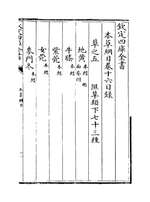 欽定四庫全書
本草綱目卷十六目錄
草之五 隰草類下七十三種
地黃 本經
牛膝 本經
紫菀 本經
女菀 本經
麥門冬 本經
本草綱目